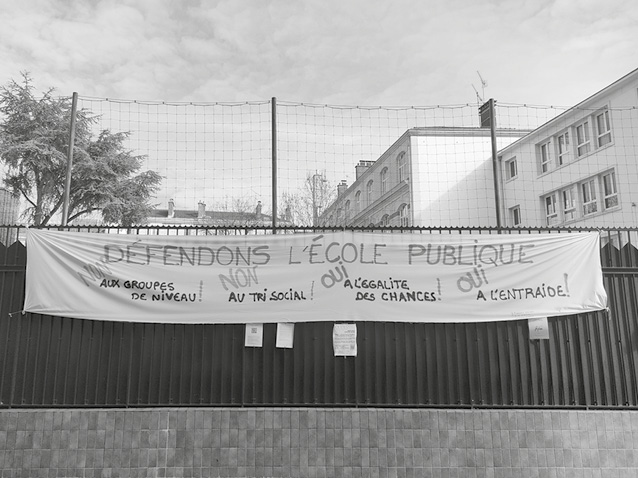 DÉFENDONS L'ÉCOLE PUBLIQUE
NON AUX GROUPES DE NIVEAU!
NON AU TRI SOCIAL!
OUI A L'EGALITE DES CHANCES!
OUI A L'ENTRAIDE!